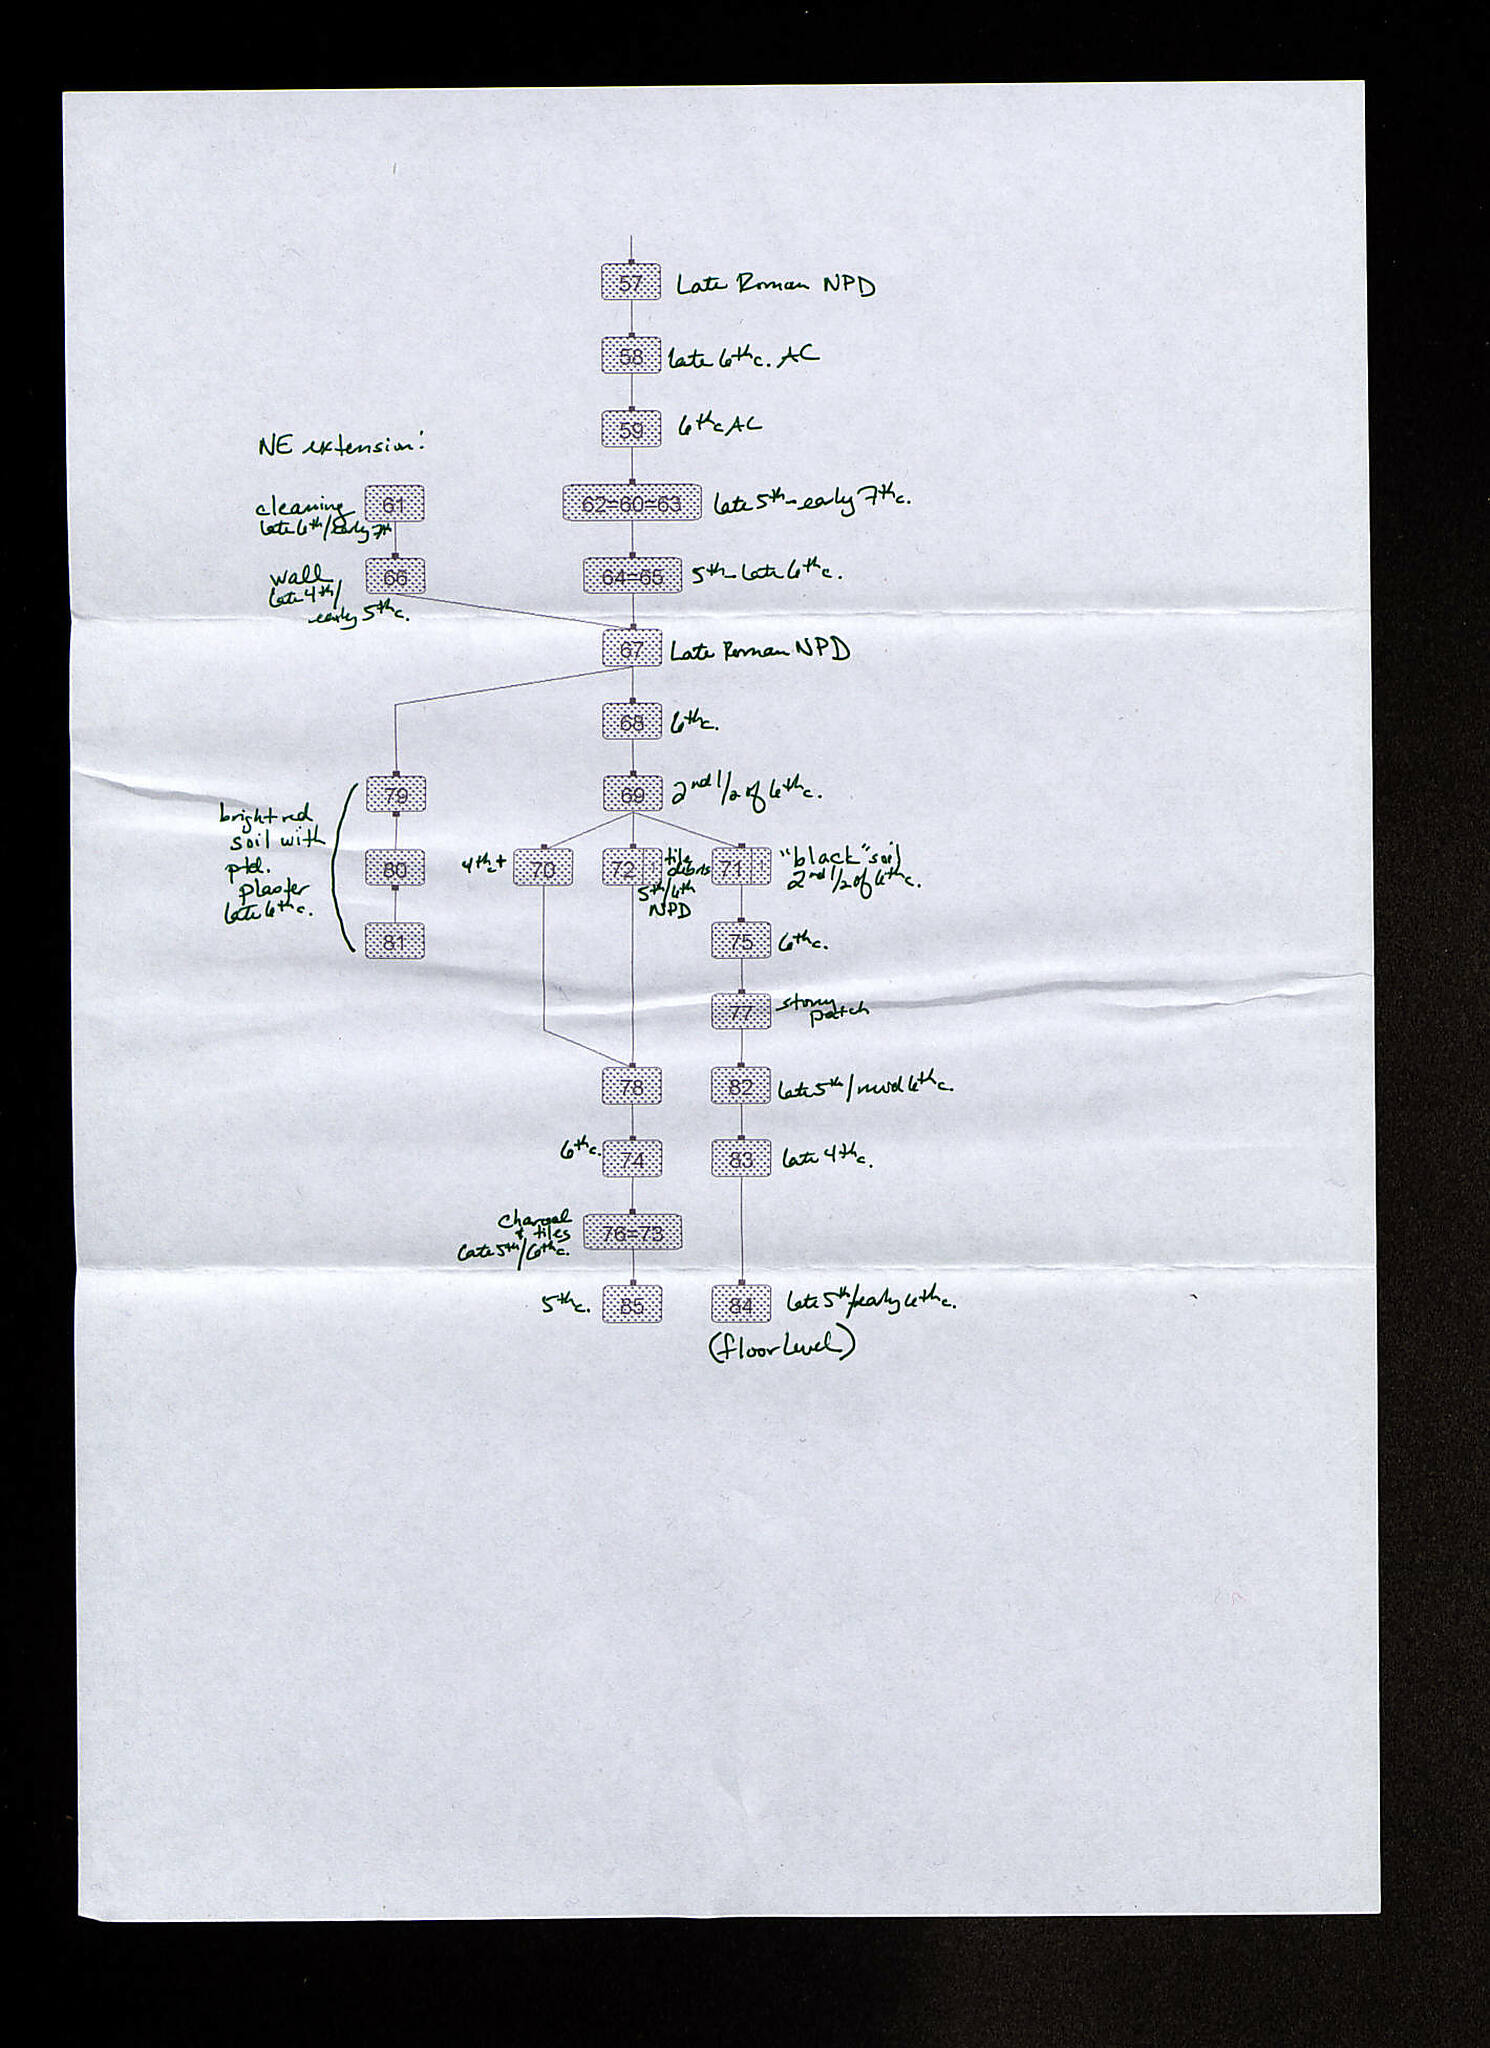 57 Late Roman NPD
58 late 6th c. AC
59 6th c AC
NE extension:
cleaning 61
late 6th/early 7th
62=60=63 late 5th-early 7th c.
wall 66
late 4th/
early 5th c.
64=65 5th-late 6th c.
67 Late Roman NPD
68 6th c.
79
69 2nd 1/2 of 6th c.
bright red
soil with
ptd.
plaster
late 6th c.
80
81
4th c+ 70
72 tile
debris
5th/6th
NPD
71 "black" soil
2nd 1/2 of 6th c.
75 6th c.
77 stony
patch
78
82 late 5th/mid 6th c.
6th c. 74
83 late 4th c.
charcoal
+ tiles
late 5th/6th c.
76=73
5th c. 85
84 late 5th/early 6th c.
(floor level)